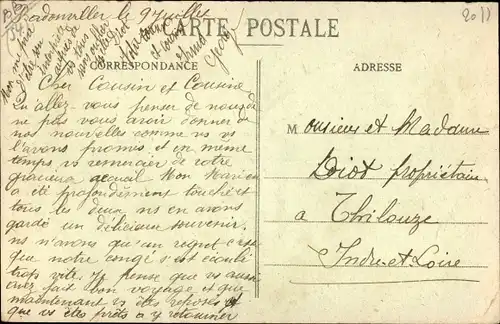 Badonviller le 9 Juillet
CARTE POSTALE
CORRESPONDANCE
ADRESSE
Cher Cousin et Cousine
Qu'allez-vous penser de nous de
ne pas vous avoir donner de
nos nouvelles comme ns vs
l'avons promis et en même
temps vs remercier de votre
gracieux accueil Mon Mari en
a été profondément touché et
tous les deux ns en avons
gardé un délicieux souvenir.
ns n'avons qu'un regret c'est
que notre congé s'est écoulé
trop vite. Je pense que vs aussi
avez fait bon voyage et que
maintenant vs êtes reposés et
que vs êtes prêts a y retourner
Monsieur et Madame
Loiot propriétaire
a Thilouze
Indre-et-Loire
2011